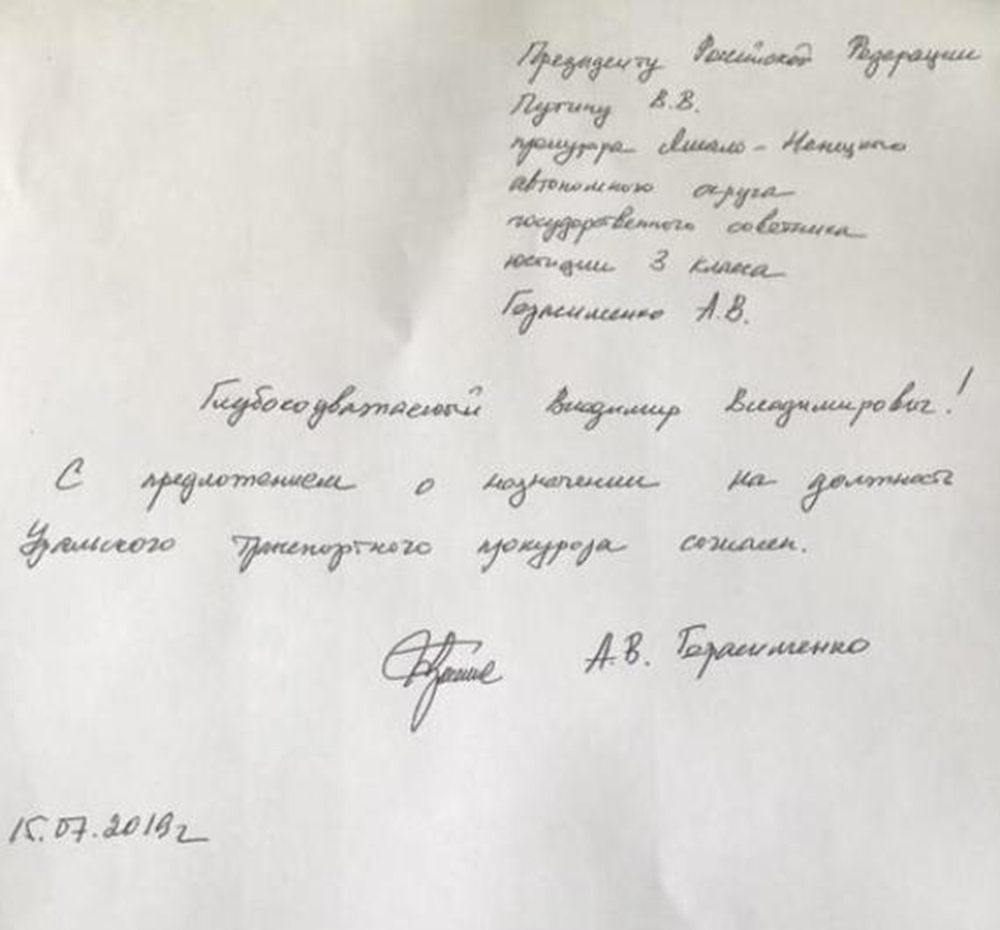 Президенту Российской Федерации
Путину В.В.
прокурора Ямало-Ненецкого
автономного округа
государственного советника
юстиции 3 класса
Герасименко А.В.
Глубокоуважаемый Владимир Владимирович!
С предложением о назначении на должность
Уральского транспортного прокурора согласен.
А.В. Герасименко
15.07.2019г